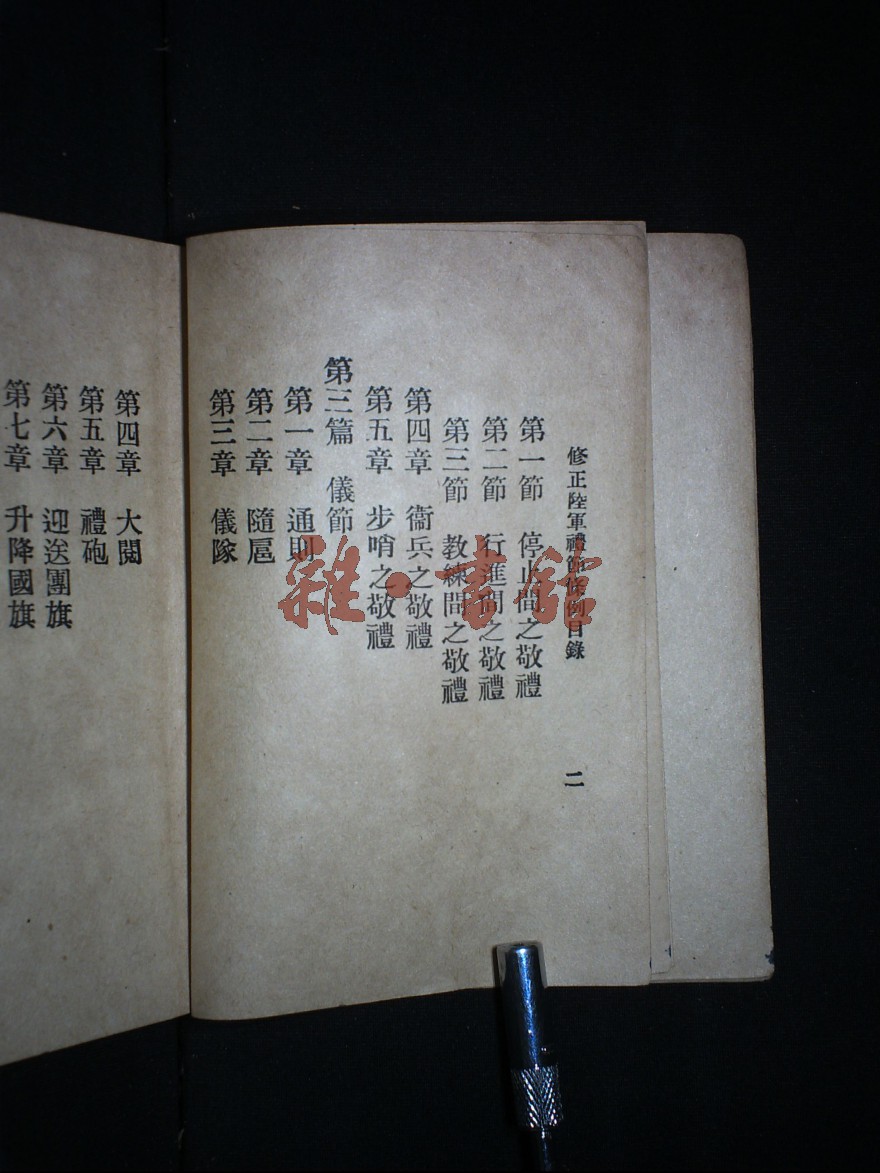 修正陸軍禮節條例目錄 二
第一節 停止間之敬禮
第二節 行進間之敬禮
第三節 教練間之敬禮
第四章 衞兵之敬禮
第五章 步哨之敬禮
第三篇 儀節
第一章 通則
第二章 隨扈
第三章 儀隊
第四章 大閱
第五章 禮砲
第六章 迎送團旗
第七章 升降國旗
雜·書館